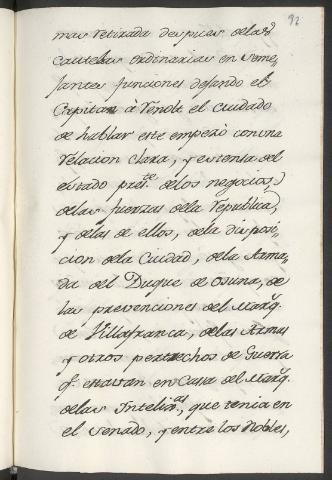 92
mas retirada despues delas
cautelas ordinarias en seme-
jantes funciones dejando el
Capitan à Renolt el cuidado
de hablar este empezò con una
relacion clara, y extensa del
estado pres.te delos negocios,
delas fuerzas dela Republica,
y delas de ellos, dela disposi-
cion dela Ciudad, dela Arma-
da del Duque de Osuna, de
las prevenciones del Marq.
de Villafranca, delas Armas
y otros pertrechos de Guerra
q. estavan en Casa del Marq.
delas Intelig.as, que tenia en
el Senado, y entre los Nobles,